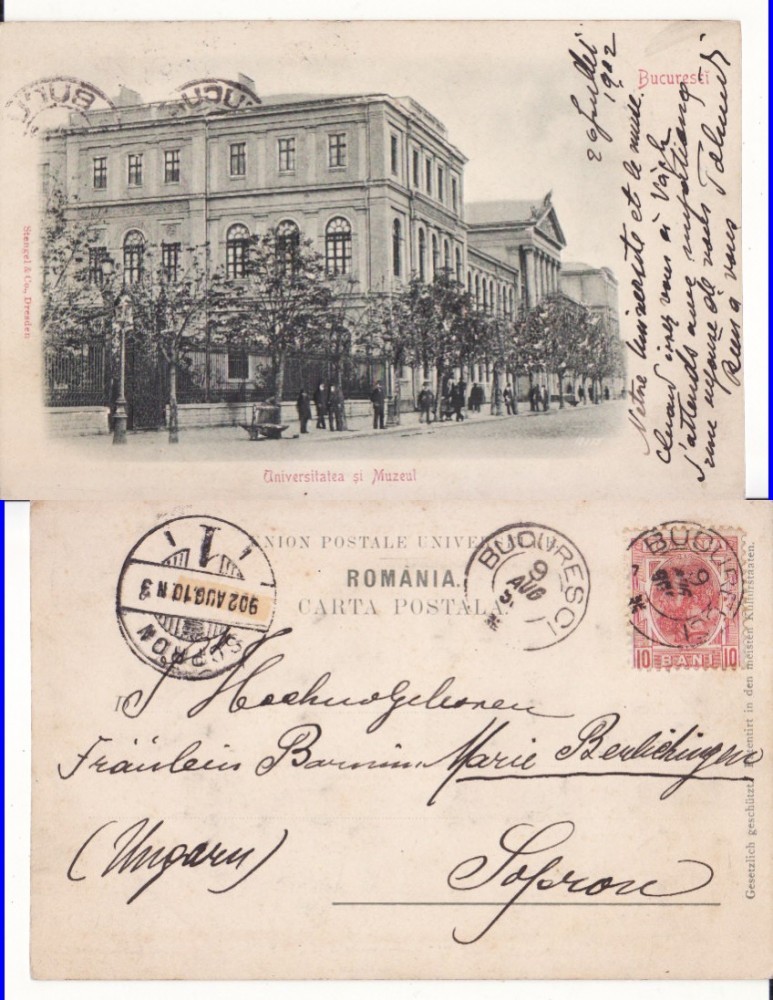 București
26 Juillet
1902
Notre Université et le musée.
Quand irez vous à Vägh
J'attends avec impatience
une réponse de vous
Bien à vous
Stengel & Co., Dresden
Universitatea și Muzeul
UNION POSTALE UNIVERSELLE
ROMÂNIA.
CARTA POSTALA.
SOPRON
902 AUG.10.N3
1
BUCURESCI
9
AUG
BUCURESCI
9
10 BANI 10
Hochwolgeboren
Fräulein Baronin Marie Berlichingen
(Ungarn)
Sopron
Gesetzlich geschützt. Patentirt in den meisten Kulturstaaten.